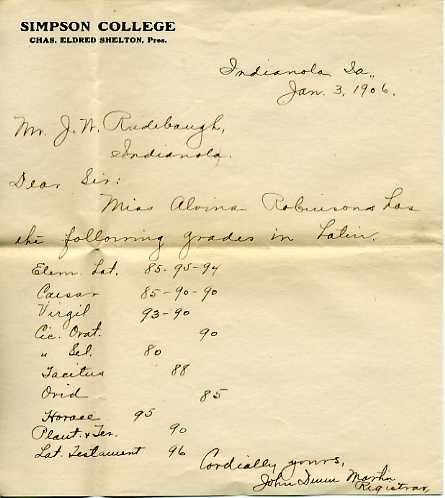 SIMPSON COLLEGE
CHAS. ELDRED SHELTON, Pres.
Indianola Ia.,
Jan. 3, 1906.
Mr. J. W. Radebaugh,
Indianola.
Dear Sir:
Miss Alvina Robinson has
the following grades in Latin.
Elem. Lat. 85-95-94
Caesar 85-90-90
Virgil 93-90
Cic. Orat. 90
" Sel. 80
Tacitus 88
Ovid 85
Horace 95
Plaut. + Ter. 90
Lat. Testament 96
Cordially yours,
John Martin
Registrar